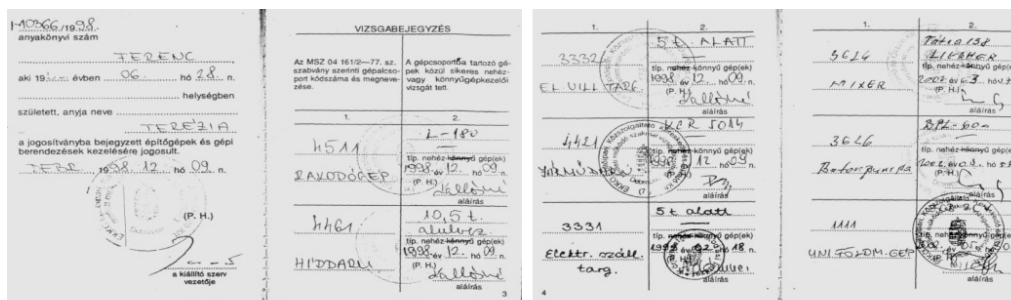 M0366/1998.
anyakönyvi szám
FERENC
aki 19 évben 06. hó 28. n.
helységben
született, anyja neve
TERÉZIA
a jogosítványba bejegyzett építőgépek és gépi
berendezések kezelésére jogosult.
DEBR. 1998. 12. 09. n.
(P. H.)
a kiállító szerv
vezetője
VIZSGABEJEGYZÉS
Az MSZ 04 161/2—77. sz.
szabvány szerinti gépcsoport
port kódszáma és megneve-
zése.
A gépcsoportba tartozó gé-
pek közül sikeres nehéz-
vagy könnyűgépkezelői
vizsgát tett.
1.
2.
4511
RAKODÓGÉP
L-180
típ. nehéz-könnyű gép(ek)
1998 év 12. hó 09. n.
(P. H.)
aláírás
4461
HIDDARU
10,5 t.
típ. nehéz-könnyű gép(ek)
1998 év 12. hó 09. n.
(P. H.)
aláírás
3
1.
2.
3332
EL. VILL. TARG.
5 t ALATT
típ. nehéz-könnyű gép(ek)
1998 év 12. hó 09. n.
(P. H.)
aláírás
4421
JÁRMŰDARU
KCR 5014
típ. nehéz-könnyű gép(ek)
1998 12. hó 09. n.
aláírás
3331
Elektr. száll.
targ.
5 t alatt
típ. nehéz-könnyű gép(ek)
hó 18. n.
(P. H.)
aláírás
4
1.
2.
3624
MIXER
típ. nehéz-könnyű gép(ek)
2002 év 03. hó
(P. H.)
aláírás
3626
Betonpumpa
BPL-600
típ. nehéz-könnyű gép(ek)
2002 év 03. hó
(P. H.)
aláírás
1111
UNI. FÖLDM. GÉP
típ. nehéz-könnyű gép(ek)
aláírás